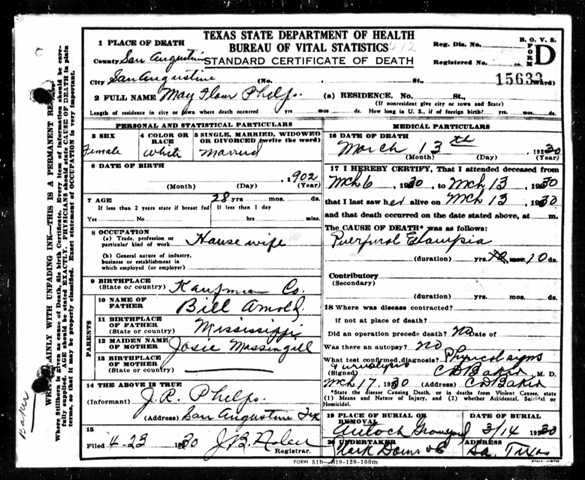 TEXAS STATE DEPARTMENT OF HEALTH
BUREAU OF VITAL STATISTICS
STANDARD CERTIFICATE OF DEATH
B. O. V. S.
FORM D
Reg. Dis. No.
Registered No.
15633
1 PLACE OF DEATH
County San Augustine
City San Augustine (No. St. Ward)
2 FULL NAME May Flour Phelps (a) RESIDENCE. No. St.
(If nonresident give city or town and State)
Length of residence in city or town where death occurred yrs. mos. ds. How long in U. S., if of foreign birth? yrs. mos. ds.
PERSONAL AND STATISTICAL PARTICULARS
3 SEX
Female
4 COLOR OR RACE
White
5 SINGLE, MARRIED, WIDOWED OR DIVORCED (write the word)
Married
6 DATE OF BIRTH
1902
(Month) (Day) (Year)
7 AGE 28 yrs. mos. ds.
If less than 2 years state if breast fed If less than 1 day
Yes No hrs min.
8 OCCUPATION
(a) Trade, profession or particular kind of work House wife
(b) General nature of industry, business or establishment in which employed (or employer)
9 BIRTHPLACE
(State or country) Kaufman Co.
PARENTS
10 NAME OF FATHER Bill Arnold
11 BIRTHPLACE OF FATHER
(State or country) Mississippi
12 MAIDEN NAME OF MOTHER Josie Massingill
13 BIRTHPLACE OF MOTHER
(State or country)
14 THE ABOVE IS TRUE
(Informant) J. R. Phelps
(Address) San Augustine Tex
15
Filed 4-23 1930
Registrar.
MEDICAL PARTICULARS
16 DATE OF DEATH
March 13th 1930
(Month) (Day) (Year)
17 I HEREBY CERTIFY, That I attended deceased
from Mch 6, 1930 to Mch 13 1930
that I last saw her alive on Mch 13 1930
and that death occurred on the date stated above, at m.
The CAUSE OF DEATH* was as follows:
Puerperal Eclampsia
(duration) yrs. mos. 10 ds.
Contributory
(Secondary)
(duration) yrs. mos. ds.
18 Where was disease contracted
if not at place of death?
Did an operation precede death? No Date of
Was there an autopsy? No
What test confirmed diagnosis? Physical signs
& urinalysis
(Signed) M. D.
Mch 17, 1930 (Address)
*State the disease Causing Death, or in deaths from Violent Causes, state
(1) Means and Nature of Injury, and (2) whether Accidental, Suicidal or Homicidal.
19 PLACE OF BURIAL OR REMOVAL
DATE OF BURIAL
3/14 1930
20 UNDERTAKER
ADDRESS
Baker